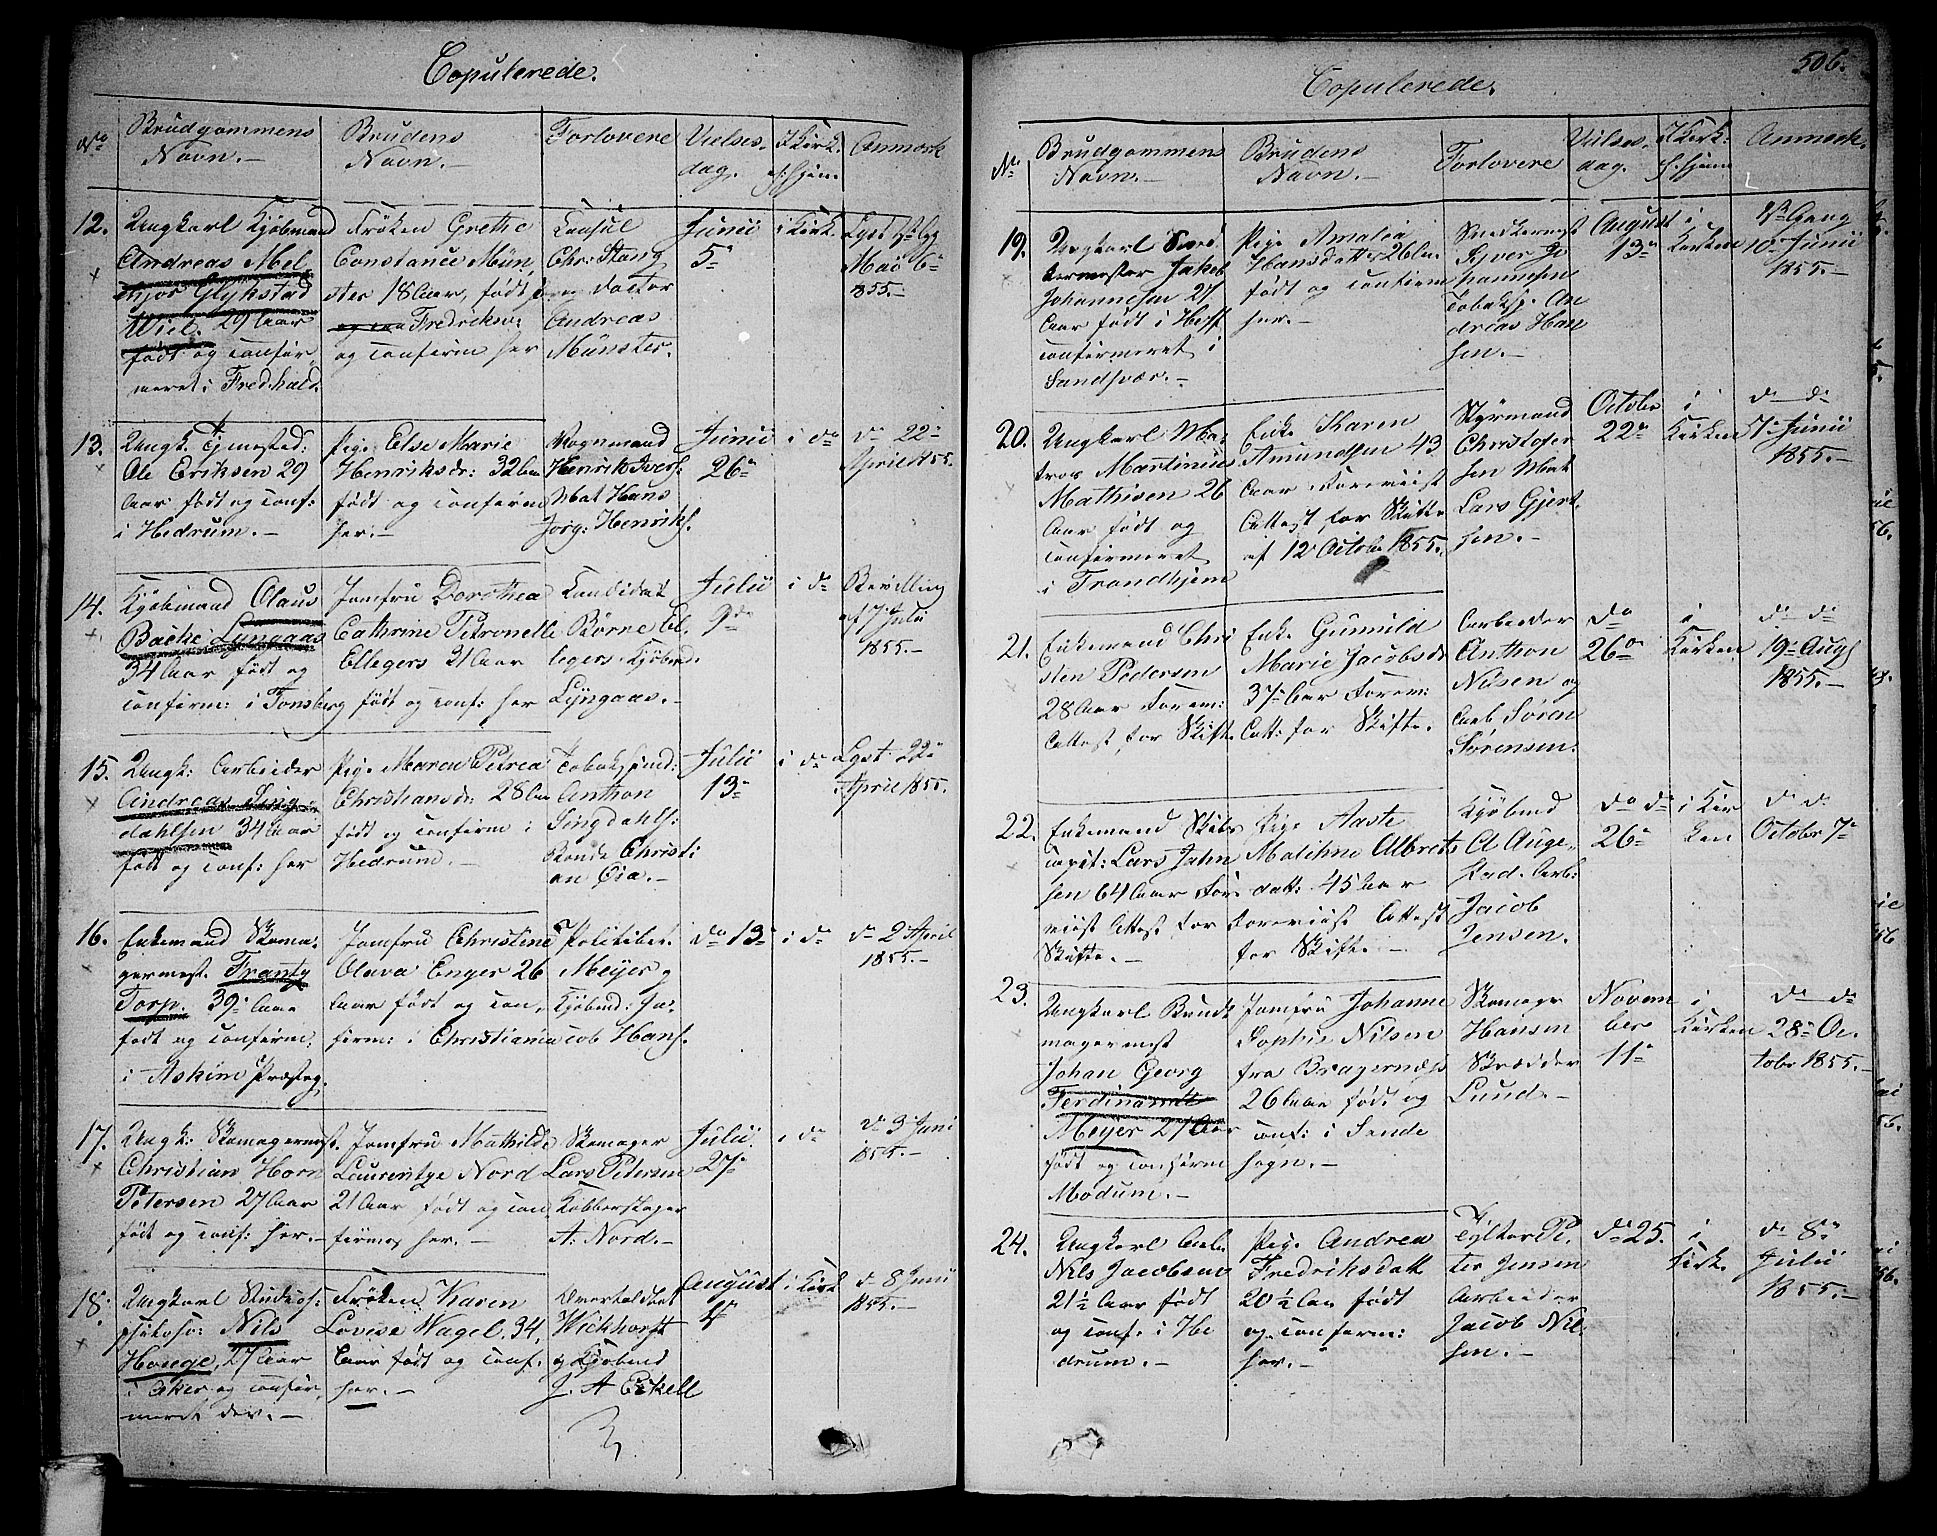 Copulerede.
No Brudgommens Navn.- Brudens Navn.- Forlovere Vielses-dag. I Kirk. el. hjem. Anmerk
12. Ungkarl Kjøbmand
Andreas Mel
chjor Glykstad
Wiel. 29 Aar
født og confir
meret i Fredhald.
Frøken Grethe
Constance Mün
ster 18 Aar, født i
Fredriksv:
og confirm her
Consul
Chr. Stang
og Doctor
Andreas
Münster.
Junii
5te
i Kirk.
Lyst
Mai 6te
1855.-
13. Ungk. Tjenested:
Ole Eriksen 29
Aar født og conf:
i Hedrum.-
Pige Else Marie
Henriksdr: 32 Aar
født og confirm
her.-
Vognmand
Henrik Ivers:
Mat Hans
Jørg: Henriks.
Junii
26te
i do
do 22de
April 1855.
14. Kjøbmand Olaus
Backe Lyngaas
34 Aar født og
confirm: i Tonsberg
Jomfru Dorothea
Cathrine Petronelle
Ellegers 31 Aar
født og conf: her
Candidat
Børne El
legers. Kjøbmd.
Lyngaas.-
Julii
9de
i do
Bevilling
af 7 Juli
1855.-
15. Ungk: Arbeider
Andreas Ling
dahlsen 34 Aar
født og conf: her
Pige Maren Petrea
Christiansdr: 28 Aar
født og confirm i
Hedrum.-
Tobakspind:
Anthon
Lingdahls:
Bonde Christi
an Øia.-
Julii
13de
i do
Lyst 22de
April 1855.
16. Enkemand Skoma-
germest. Frantz
Torp. 39 Aar
født og confirm.
i Askim Præsteg.
Jomfru Christine
Olava Enger 26
Aar født og con-
firm: i Christiania
Politibet.
Meyer og
Kjøbmd: Ja-
cob Hans.
do 13de
i do
do 2 April
1855.-
17. Ungk: Skomagermest.
Christian Horn
Petersen 27 Aar
født og conf: her.-
Jomfru Mathilde
Laurentze Nord
21 Aar født og con
firmeret her.-
Skomager
Lars Petersen
Kobberslager
A. Nord.-
Julii
27de
i do
do 3 Juni
1855.-
18. Ungkarl Studios:
philoso: Nils
Hauge, 27 Aar
i Aker og confir
meret der.-
Frøken Karen
Lovise Nagel, 34,
Aar født og conf.
her.-
Overtoldbet
Wickhorst
og Kjøbmd
J. A Eckell
August
4de
i Kirk
do 8 Juni
1855.-
506.
Copulerede.
No Brudgommens Navn.- Brudens Navn.- Forlovere Vielses-dag. I Kirk: el. hjem Anmerk.
19. Ungkarl
Jakob
Johannesen 27
Aar født i Heff
confirmeret i
Sandsvær.-
Pige Amalia
Hansdatter 26 Aar
født og confirm
her.-
Snedkermest
Syver Jo
hannesen
Tobaksp. An
dreas Han
sen.-
August
13de
i
Kirken
1ste Gang
10de Junii
1855.-
20. Ungkarl Ma-
tros Martinius
Mathisen 26
Aar født og
confirmeret
i Trondhjem
Enke Karen
Amundsen 43
Aar. Foreviist
Attest for Skifte
af 12 Octobr 1855.
Styrmand
Christofer
sen Mat
Lars Gjert
sen.-
Octobr
22de
i
Kirken
do do
Junii
1855.-
21. Enkemand Chri
sten Pedersen
28 Aar Forev:
Attest for Skifte
Enke Gunild
Marie Jacobsdr
37 Aar Forev:
Att: for Skifte.
Arbeider
Anthon
Nilsen og
Arb Søren
Sørensen.
do
26de
i
Kirken
do do
19de Aug
1855.-
22. Enkemand Skibs
capit: Lars Jahn
sen 64 Aar Fore
viist Attest for
Skifte.-
Pige Aaste
Mathine Albrets
datt: 45 Aar
Foreviist Attest
for Skifte.-
Kjøbmd
A Auge
stad. Arb:
Jacob
Jensen.
do do
26de
i Kir
ken
do do
Octobr 7de
23. Ungkarl Bundt
magermest
Johan Georg
Ferdinandt
Meyer 27 Aar
født og confirm
Modum.-
Jomfru Johanne
Sophie Nilsen
fra Bragernæs
26 Aar født og
conf: i Sande
Sogn.-
Skomager
Hansen
Skrædder
Lund.-
Novem
ber
11te
i
Kirken
do do
28de Oc
tobr 1855.-
24. Ungkarl Arb.
Nils Jacobsen
21½ Aar født
og conf. i He
drum.-
Pige Andrea
Fredriksdatt
20½ Aar født
og confirm:
her.-
Tylter Pe
ter Jensen
Arbeider
Jacob Nil
sen.-
do 25.
i
Kirk.
do 8de
Julii
1855.-